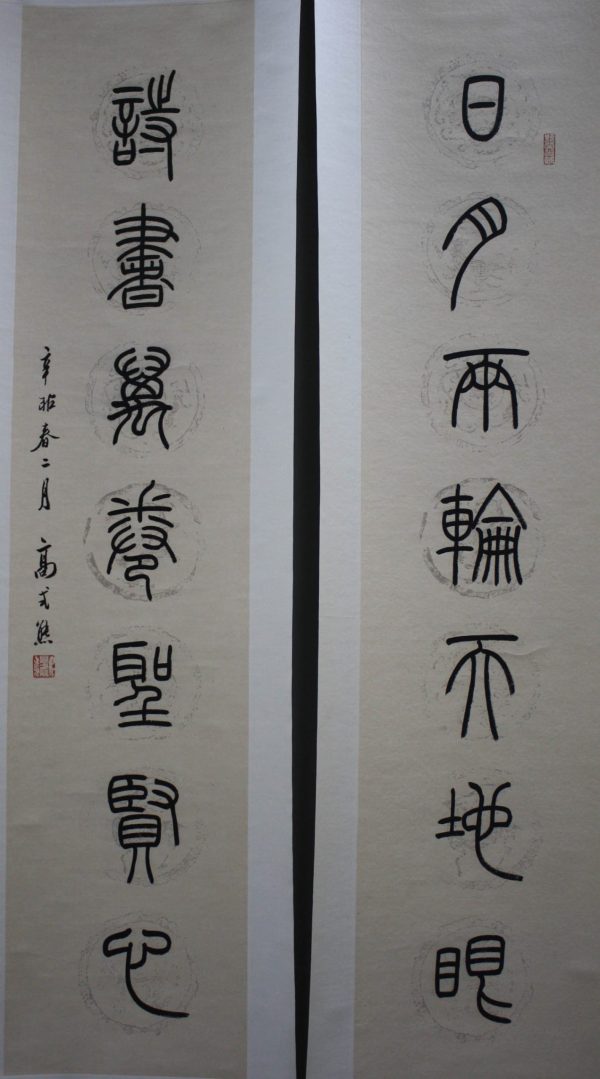 日月兩輪天地眼
詩書萬卷聖賢心
辛卯春二月 高式熊